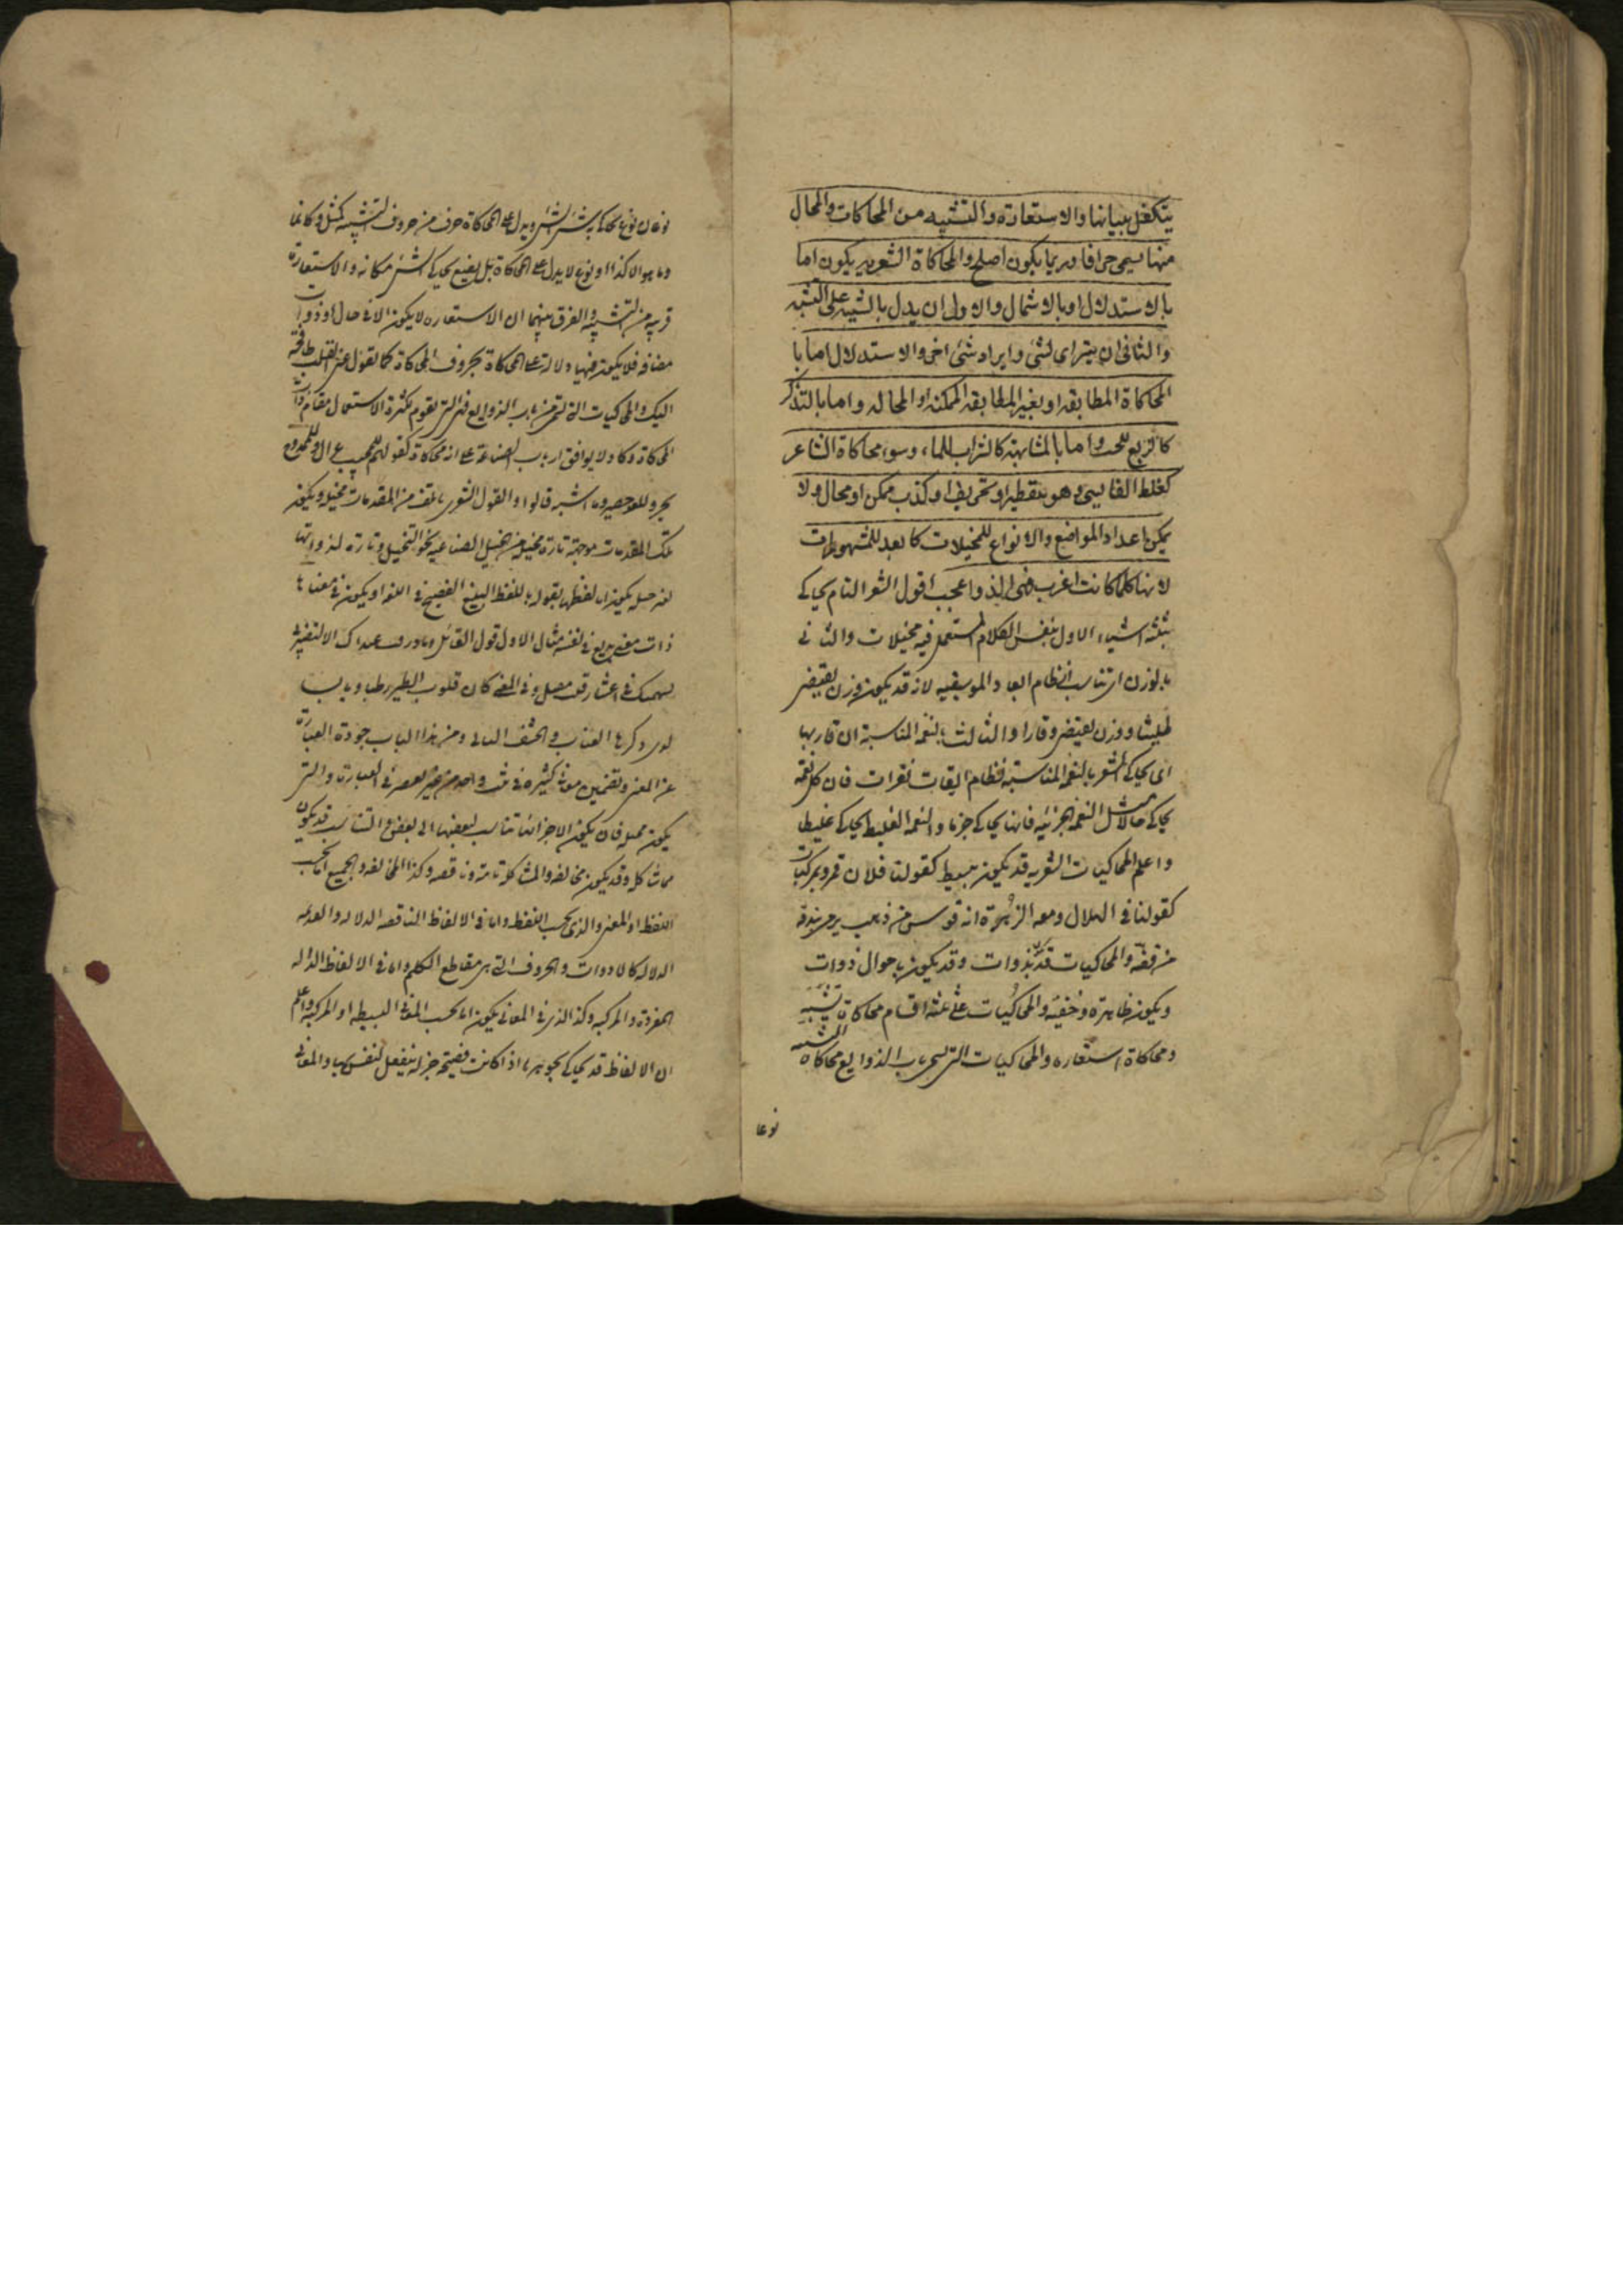 يتكفل ببيانها والاستعارة والتشبيه من المحاكات والمحال
منها يسمى خرافا وربما يكون اصلح والمحاكاة الشعريه يكون اما
بالاستدلال او بالاشتمال والاول ان يدل بالشبيه على الشبه
والثانى ان يترا اى لشئ وايراد شئ اخر والاستدلال اما با
لمحاكاة المطابقه او بغير المطابقه الممكنه او المحاله واما بالتذكر
كالربع للحد واما بالمشابهة كالتراب للماء وسوء محاكاة الشاعر
كغلط القايسى وهو بتقصير او تحريف او كذب ممكن او محال ولا
يمكن اعداد المواضع والانواع للمخيلات كما يعد للمشهورات
لانها كلما كانت اغرب فهى الذ واعجب اقول الشعر التام يحاكى
بثلثة اشياء الاول بنفس الكلام المستعمل فيه مخيلات والثانى
بالوزن اى تناسب انتظام ابعاد الموسيقيه لانه قد يكون وزن يقتضى
طيشا ووزن يقتضى وقارا والثالث بنغم المناسبة ان قاربها
اى يحاكى الشعر بالنغم المناسبة فنظام ايقات نقرات فان كل نغمة
يحاكى حالا مثل النغمه الحزنيه فانها يحاكى حزنا والنغمة الغليظه يحاكى غليظا
واعلم المحاكيات الشعريه قد يكون ببسيط كقولنا فلان قمر وبمركبات
كقولنا فى الهلال ومعه الزهرة انه قوس من ذهب يرمى بندقة
من فضة والمحاكيات قد بذوات وقد يكون باحوال ذوات
ويكون ظاهرة وخفية والمحاكيات على ثلثه اقسام محاكاة تشبيه
ومحاكاة استعاره والمحاكيات التى يسمى باب الذوايع محاكاة التشبيه
نوعا
نوعان نوع يحاكى به شئ الشئ ويدل على المحاكاة حرف من حروف التشبيه كمثل وكانما
وما هو الا كذا ونوع لا يدل على المحاكاة بل يضع يحاكى الشئ مكانه والاستعارة
قريبه من التشبيه والفرق بينهما ان الاستعاره لا يكون الا فى حال او ذوات
مضافه فلا يكون فيها دلالة على المحاكاة بحروف المحاكاة كما تقول عين القلب طامحة
اليك والمحاكيات التى من باب الذوايع فهى التى يقوم بكثرة الاستعمال مقام ذات
المحاكاة وكاد لا يوافق ارباب الصناعة على انه محاكاة كقولهم للحبيب غزال وللممدوح
بحر وللقد غصن وما اشبه قالوا والقول الشعرى يأتلف من المقدمات مخيله ويكون
تلك المقدمات موجهة تارة بحيلة من الحيل الصناعيه نحو التخييل وتارة لذواتها
بلا حيله يكون اما لفظها بقوله باللفظ البليغ الفصيح فى اللغة او يكون فى معناها
ذات معنى بديع فى نفسه مثال الاول قول القائل وما ذرفت عيناك الا لتضربى
بسهميك فى اعشار قلب مقتل وفى المعنى كان قلوب الطير رطبا ويابسا
لدى وكرها العناب والحشف البالى ومن هذا الباب جودة العبارة
عن المعنى وتضمين معان كثيرة فى بيت واحد من غير تقصير فى العبارة والتى
يكون بحيله فان يكون الاجزائها تناسب لبعضها الى بعض والتناسب قد يكون
بمشاكله وقد يكون بمخالفه والمشاكله تامة وناقصه وكذا المخالفه والجميع اما بحسب
اللفظ او المعنى والذى بحسب اللفظ واما فى الالفاظ الناقصه الدلاله والعديمه
الدلاله كالادوات والحروف التى هى مقاطع الكلم واما فى الالفاظ الداله
المفردة والمركبه وكذا الذى فى المعانى يكون اما بحسب المعانى البسيطه او المركبه واعلم
ان الالفاظ قد يحاكى بجوهرها اذا كانت فصيحة جزله ينفعل النفس بها والمعانى